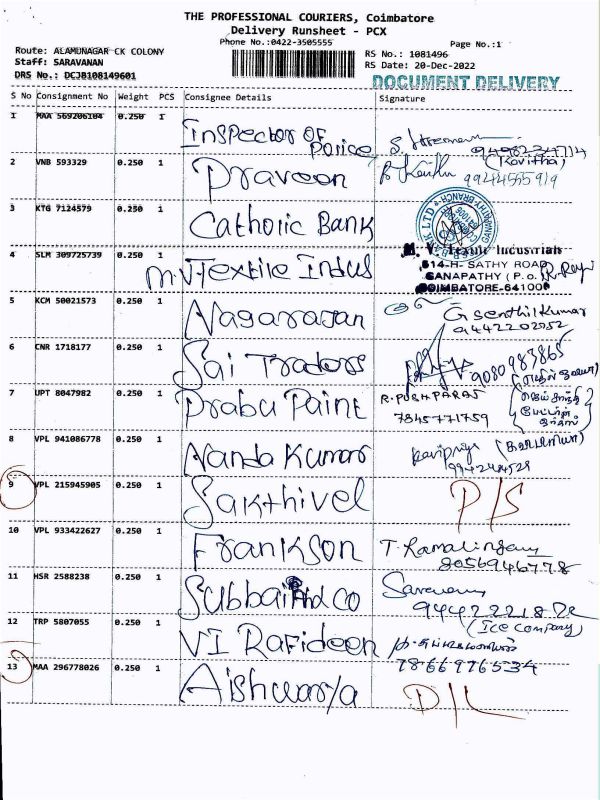 THE PROFESSIONAL COURIERS, Coimbatore
Delivery Runsheet - PCX
Phone No.:0422-3505555
Page No.:1
Route: ALAMUNAGAR CK COLONY
Staff: SARAVANAN
DRS No.: DCJB108149601
RS No.: 1081496
RS Date: 20-Dec-2022
DOCUMENT DELIVERY
S No Consignment No Weight PCS Consignee Details Signature
1 MAA 569206104 0.250 1 Inspector OF
Police
2 VNB 593329 0.250 1 Praveen (Kavitha)
3 KTG 7124579 0.250 1 Catholic Bank
4 SLM 309725739 0.250 1 M.V.Textile Indus M. V. Textile Industrials
614-H- SATHY ROAD
GANAPATHY (P.O.)
COIMBATORE-641006
5 KCM 50021573 0.250 1 Nagarajan G Senthil Kumar
9442202252
6 CNR 1718177 0.250 1 Sai Traders 9080983865
7 UPT 8047982 0.250 1 Prabu Paint R. PUSHPARAJ
7845771759
8 VPL 941086778 0.250 1 Nanda Kumar Kavipriya
9 VPL 215945905 0.250 1 Sakthivel P/S
10 VPL 933422627 0.250 1 Frankson T. Ramalingam
8056946778
11 HSR 2588238 0.250 1 Subbaiah and CO
(Ice company)
12 TRP 5807055 0.250 1 VI Rafideen
7866976534
13 MAA 296778026 0.250 1 Aishwarya D/L